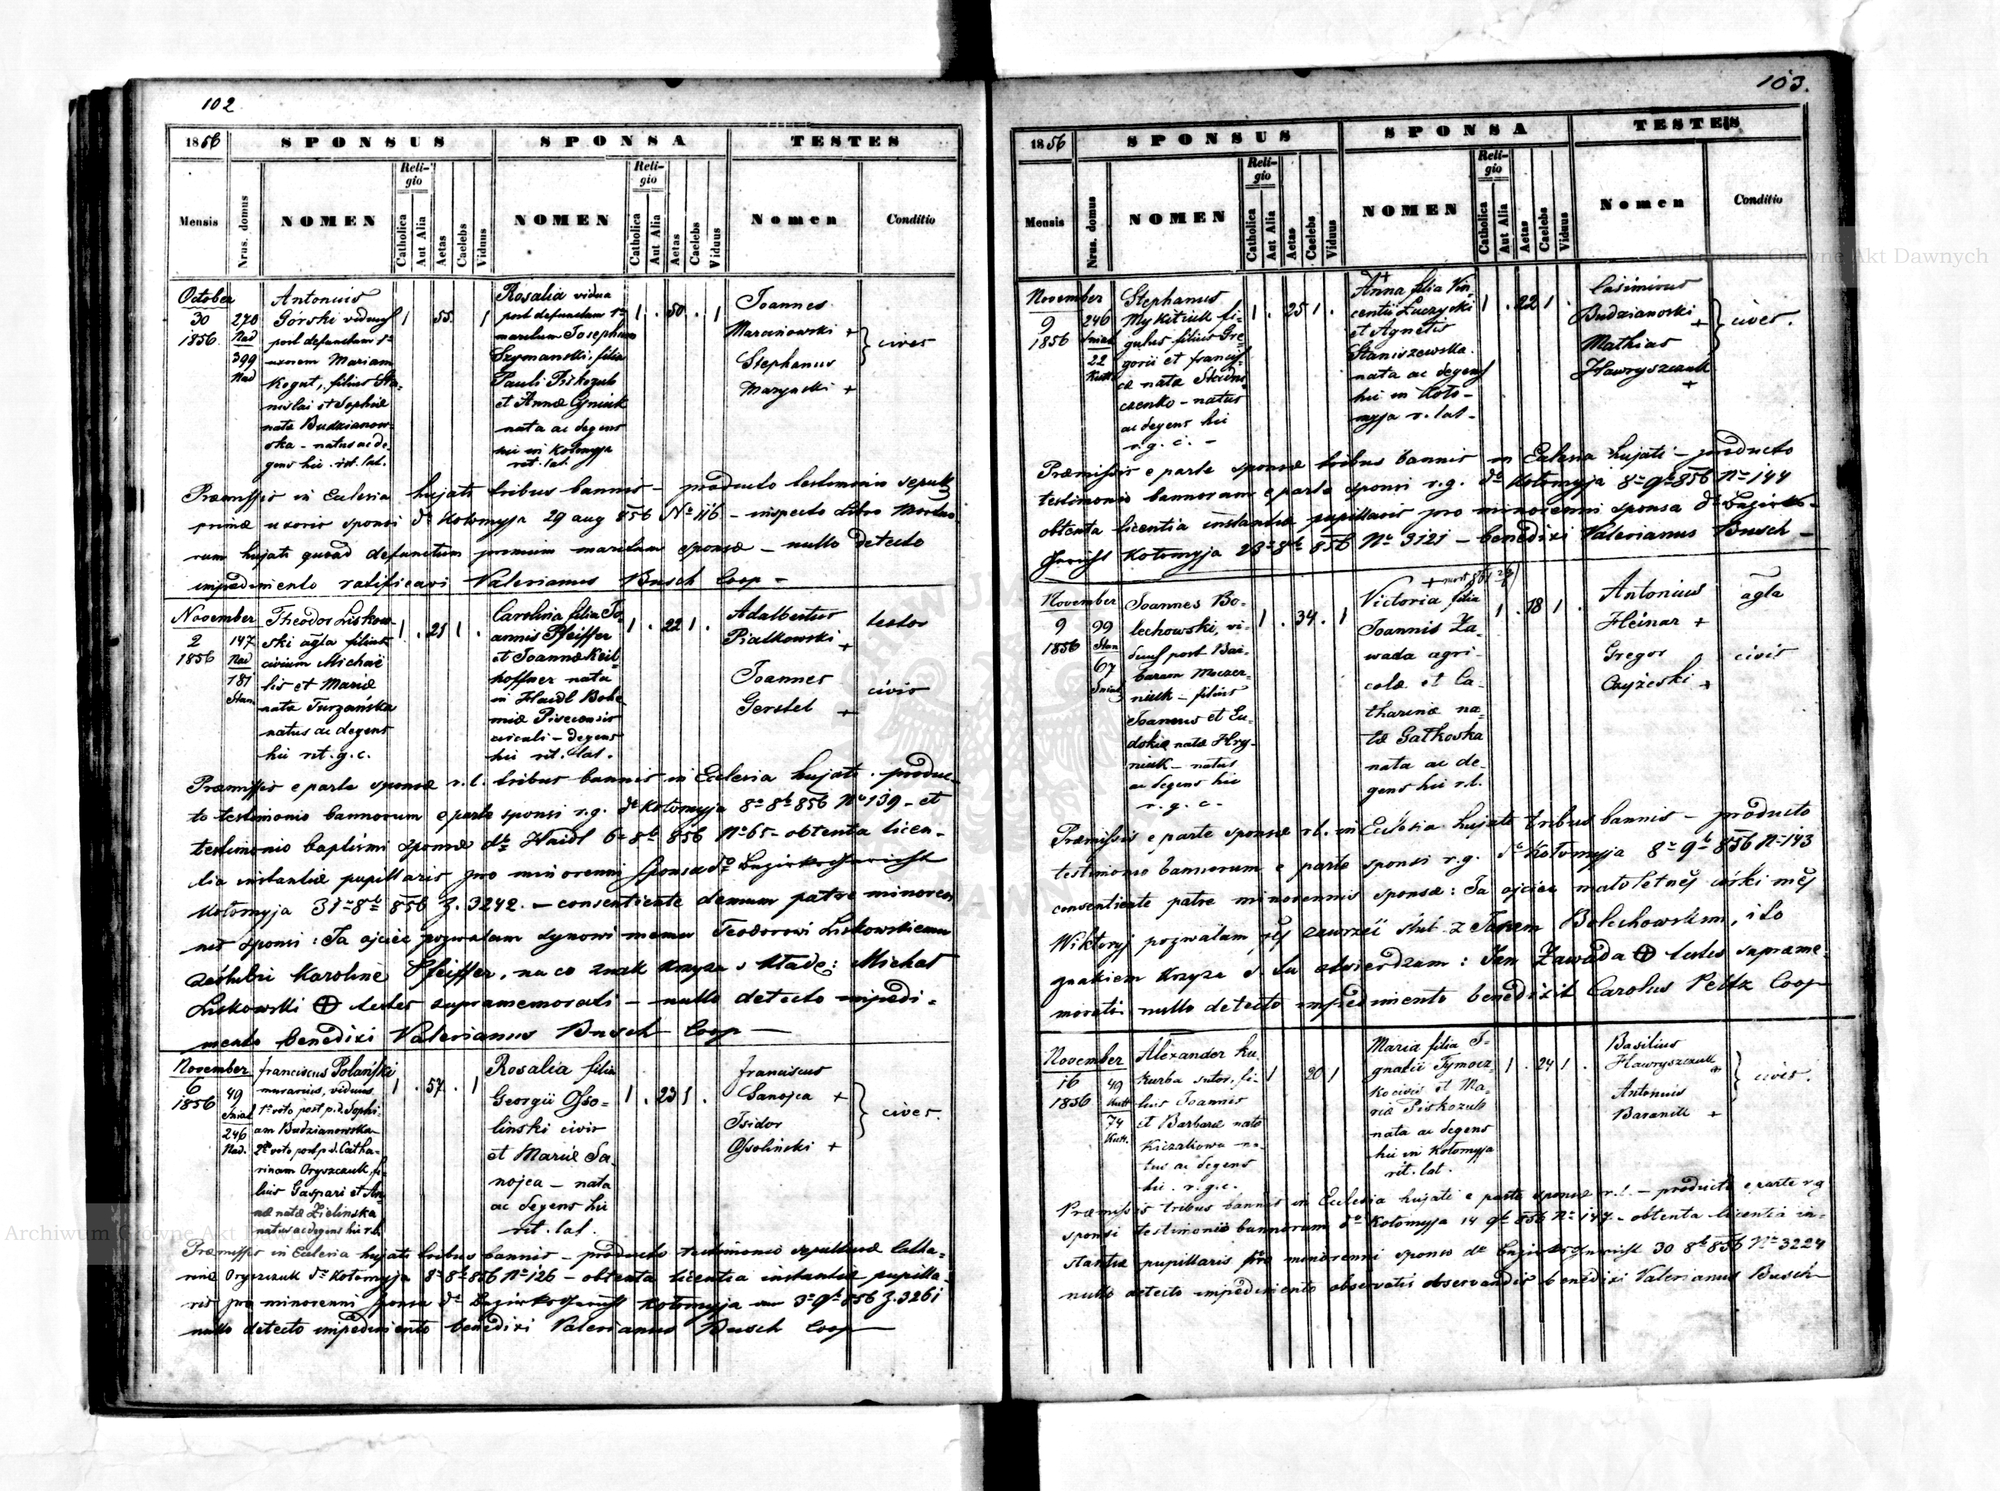 102
1856
SPONSUS
SPONSA
TESTES
Mensis
Nrus. domus
NOMEN
Religio
Catholica
Aut Alia
Aetas
Caelebs
Viduus
NOMEN
Religio
Catholica
Aut Alia
Aetas
Caelebs
Viduus
Nomen
Conditio
October
30
1856.
270
Nad
399
Nad
Antonius
Górski viduus
post defunctam
uxorem Mariam
Kogut, filius Sta-
nislai et Sophiae
nata Budzianow-
ska - natus ac de-
gens hic. rit. lat.
1 . 55. 1
Rosalia vidua
post defunctum
maritum Josephum
Szymanski, filia
Pauli Piskozub
et Annae
nata ac degens
hic in Kołomyja
rit. lat.
1 . 50 . 1
Joannes
Marcinowski +
Stephanus
+
cives
Praemissis in Eclesia hujati tribus bannis - producto testimonio sepul-
uxoris sponsi dto Kołomyja 29 aug 856 No 116 - inspecto Libro Mortuo-
rum hujati quoad defunctum primum maritum sponsae - nullo detecto
impedimento ratificavi Valerianus Busch Coop -
November
2
1856
147
Nad
181
Stan
Theodor Liskow-
ski agla filius
civium Michae-
lis et Mariae
nata Turzańska
natus ac degens
hic rit. g. c.
1 . 21 1 .
Carolina filia Jo-
annis Pfeiffer
et Joannae Keil-
hoffner nata
in Haidl Bohe-
miae Pisecensis
circuli - degens
hic rit. lat.
1 . 22 1 .
Adalbertus
Piatkowski +
Joannes
Gerstel +
civis
Praemissis e parte sponsae r.l. tribus bannis in Eclesia hujati . produc-
to testimonio bannorum e parte sponsi r.g. dto Kołomyja 8a 8b 856 No 139 - et
testimonio baptismi sponsae dto Haidl 6a 8b 856 No 65 - obtenta licen-
tia instantiae pupillaris pro minorenni sponsa dto Bezirksgericht
Kołomyja 31a 8b 856 Z. 3242. - consentiente demum patre minoren-
nis sponsi : Ja ojciec pozwalam synowi memu Teodorowi Liskowskiemu
zaślubić Karolinę Pfeiffer, na co znak krzyża s kładę: Michał
Liskowski ⊕ testes supramemorati - nullo detecto impedi-
mento benedixi Valerianus Busch Coop -
November
6
1856
49
Sniat
246
Nad.
franciscus Polański
murarius, viduus
1o voto post p.d. Sophi-
am Budzianowska
2o voto post p.d. Catha-
rinam Oryszczuk fi-
lius Gaspari et An-
nae natae Zielinska
natus ac degens hic r.l.
1 . 57. . 1
Rosalia filia
Georgii Osso-
linski civis
et Mariae Sa-
nojca - nata
ac degens hic
rit. lat.
1 . 23 1 .
franciscus
Sanojca +
Isidor
Ossoliński +
cives
Praemissis in Eclesia hujati tribus bannis - producto testimonio sepulturae Catha-
rinae Oryszczuk dto Kołomyja 8a 8b 856 No 126 - obtenta licentia instantiae pupilla-
ris pro minorenni sponsa dto Bezirksgericht Kołomyja 3a 9b 856 Z. 3261
nullo detecto impedimento benedixi Valerianus Busch Coop
103.
1856
SPONSUS
SPONSA
TESTES
Mensis
Nrus. domus
NOMEN
Religio
Catholica
Aut Alia
Aetas
Caelebs
Viduus
NOMEN
Religio
Catholica
Aut Alia
Aetas
Caelebs
Viduus
Nomen
Conditio
November
9
1856
246
Sniat
22
Kutt
Stephanus
Mykitiuk fi-
gulus filius Gre-
gorii et francis-
cae nata
czenko - natus
ac degens hic
r. g. c. -
1 . 25 1 .
+
Anna filia Vin-
centii Łuczycki
et Agnetis
Staniszewska.
nata ac degens
hic in Koło-
myja r. lat -
1 . 22 1
Casimirus
Budzianoski +
Mathias
Hawryszczuk
+
cives.
Praemissis e parte sponsae tribus bannis in Eclesia hujati - producto
testimonio bannorum e parte sponsi r.g. dto Kołomyja 8a 9b 856 No 144
obtenta licentia instantiae pupillaris pro minorenni sponsa dto Bezirks-
gericht Kołomyja 28a 8b 856 No 3121 - benedixi Valerianus Busch -
November
9
1856
99
Stan
67
Sniat
Joannes Bo-
lechowski, vi-
duus post Bar-
baram
niuk - filius
Joannis et Eu-
dokiae natae Hry-
niuk - natus
ac degens hic
r. g. c -
1 . 34 . 1
Victoria filia
Joannis Za-
wada agri-
colae et Ca-
tharinae na-
tae Gałkowska
nata ac de-
gens hic r.l.
1 . 18 1 .
Antonius
Heinar +
Gregor
Czyżeski +
agla
civis
Praemissis e parte sponsae r.l. in Eclesia hujati tribus bannis - producto
testimonio bannorum e parte sponsi r.g. dto Kołomyja 8a 9b 856 No 143
consentiente patre minorennis sponsae : Ja ojciec małoletnéj córki méj
Wiktoryj pozwalam jéj zawrzeć ślub z Janem Bolechowskim, i to
znakiem krzyża ś tu stwierdzam : Jan Zawada ⊕ testes suprame-
morati nullo detecto impedimento benedixit Carolus Peltz Coop
November
16
1856
49
Kutt
74
Kutt.
Alexander Ku-
kurba sutor, fi-
lius Joannis
et Barbarae nata
na-
tus ac degens
hic . r. g. c.
1 20 1
Maria filia I-
gnatii Tymocz-
ko civis et Ma-
riae Piskozub
nata ac degens
hic in Kołomyja
rit. lat.
1 . 24 1 .
Basilius
Hawryszczuk +
Antonius
Baranik +
cives.
Praemissis tribus bannis in Eclesia hujati e parte sponsae r.l. - producto e parte r.g
sponsi testimonio bannorum dto Kołomyja 14 9b 856 No 147 - obtenta licentia in-
stantiae pupillaris pro minorenni sponso dto Bezirksgericht 30 8b 856 No 3224
nullo detecto impedimento observatis observandis benedixi Valerianus Busch
Archiwum Główne Akt Dawnych
Archiwum Główne Akt Dawnych